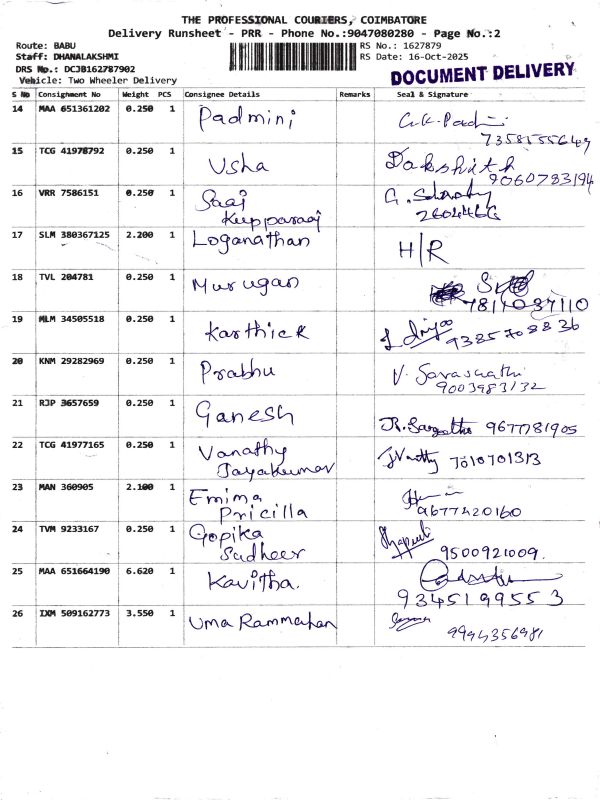 THE PROFESSIONAL COURIERS, COIMBATORE
Delivery Runsheet - PRR - Phone No.:9047080280 - Page No.:2
Route: BABU
Staff: DHANALAKSHMI
DRS No.: DCJB162787902
Vehicle: Two Wheeler Delivery
RS No.: 1627879
RS Date: 16-Oct-2025
DOCUMENT DELIVERY
S No Consignment No Weight PCS Consignee Details Remarks Seal & Signature
14 MAA 651361202 0.250 1 Padmini
7358155649
15 TCG 41978792 0.250 1 Usha Dakshith
9060783194
16 VRR 7586151 0.250 1 Saaj
Kupparaaj
260446G
17 SLM 380367125 2.200 1 Loganathan H/R
18 TVL 204781 0.250 1 Murugan
7811037110
19 MLM 34505518 0.250 1 Karthick
9385708836
20 KNM 29282969 0.250 1 Prabhu V. Saraswathi
9003983132
21 RJP 3657659 0.250 1 Ganesh 9677781905
22 TCG 41977165 0.250 1 Vanathy
Jayakumar
7010701313
23 MAN 360905 2.100 1 Emima
Pricilla
9677420160
24 TVM 9233167 0.250 1 Gopika
Sudheer
9500921009.
25 MAA 651664190 6.620 1 Kavitha.
9345199553
26 IXM 509162773 3.550 1 Uma Rammohan
9994356981